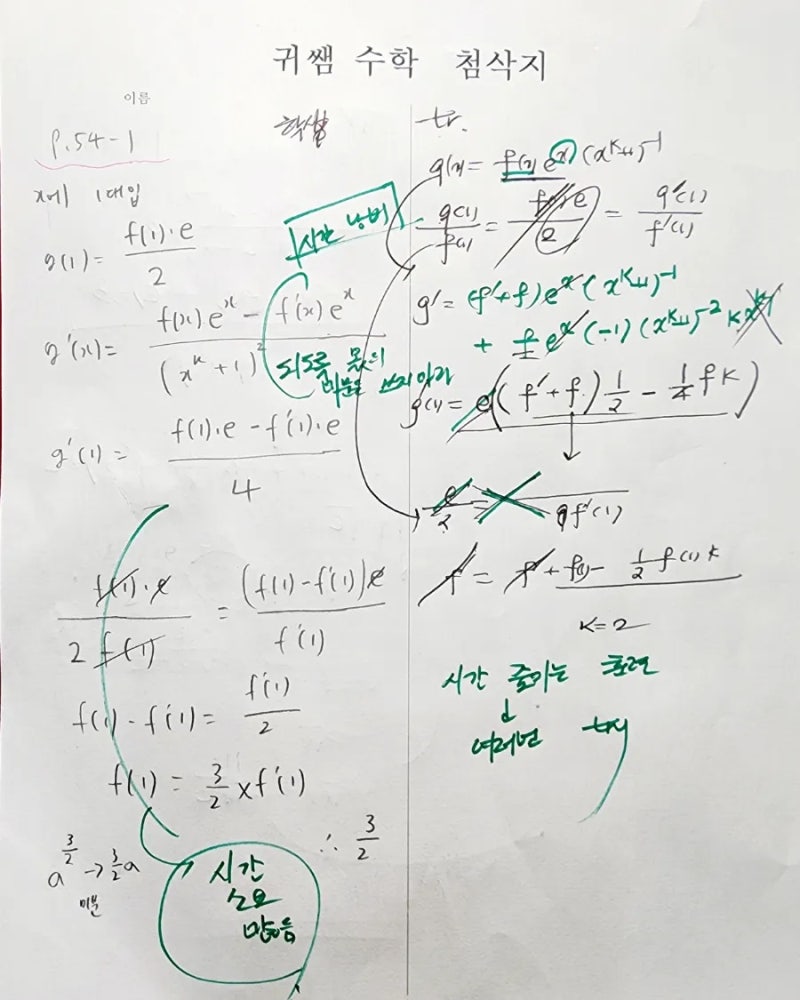 귀쌤 수학 첨삭지
이름
학생
p.54-1
x에 1대입
g(1) = f(1)·e / 2
g'(x) = f(x)e^x - f'(x)e^x / (x^k+1)^2
g'(1) = f(1)·e - f'(1)·e / 4
f(1)·e / 2f(1) = (f(1)-f'(1))e / f'(1)
f(1)-f'(1) = f'(1) / 2
f(1) = 3/2 × f'(1)
∴ 3/2
a^(3/2) → 3/2 a
미분
시간
소요
많음
시간 낭비
되도록 몫의
미분을 쓰지 마라
tr.
g(x) = f(x)e^x (x^k+1)^-1
g(1) / f(1) = f(1)e / 2 = g'(1) / f'(1)
g' = (f'+f)e^x (x^k+1)^-1
+ f e^x (-1)(x^k+1)^-2 k
g'(1) = e((f'+f)1/2 - 1/4 fk)
e/2 =
f'(1)
f' = f' + f(1) - 1/2 f(1)k
k=2
시간 줄이는 훈련
↓
여러번 try